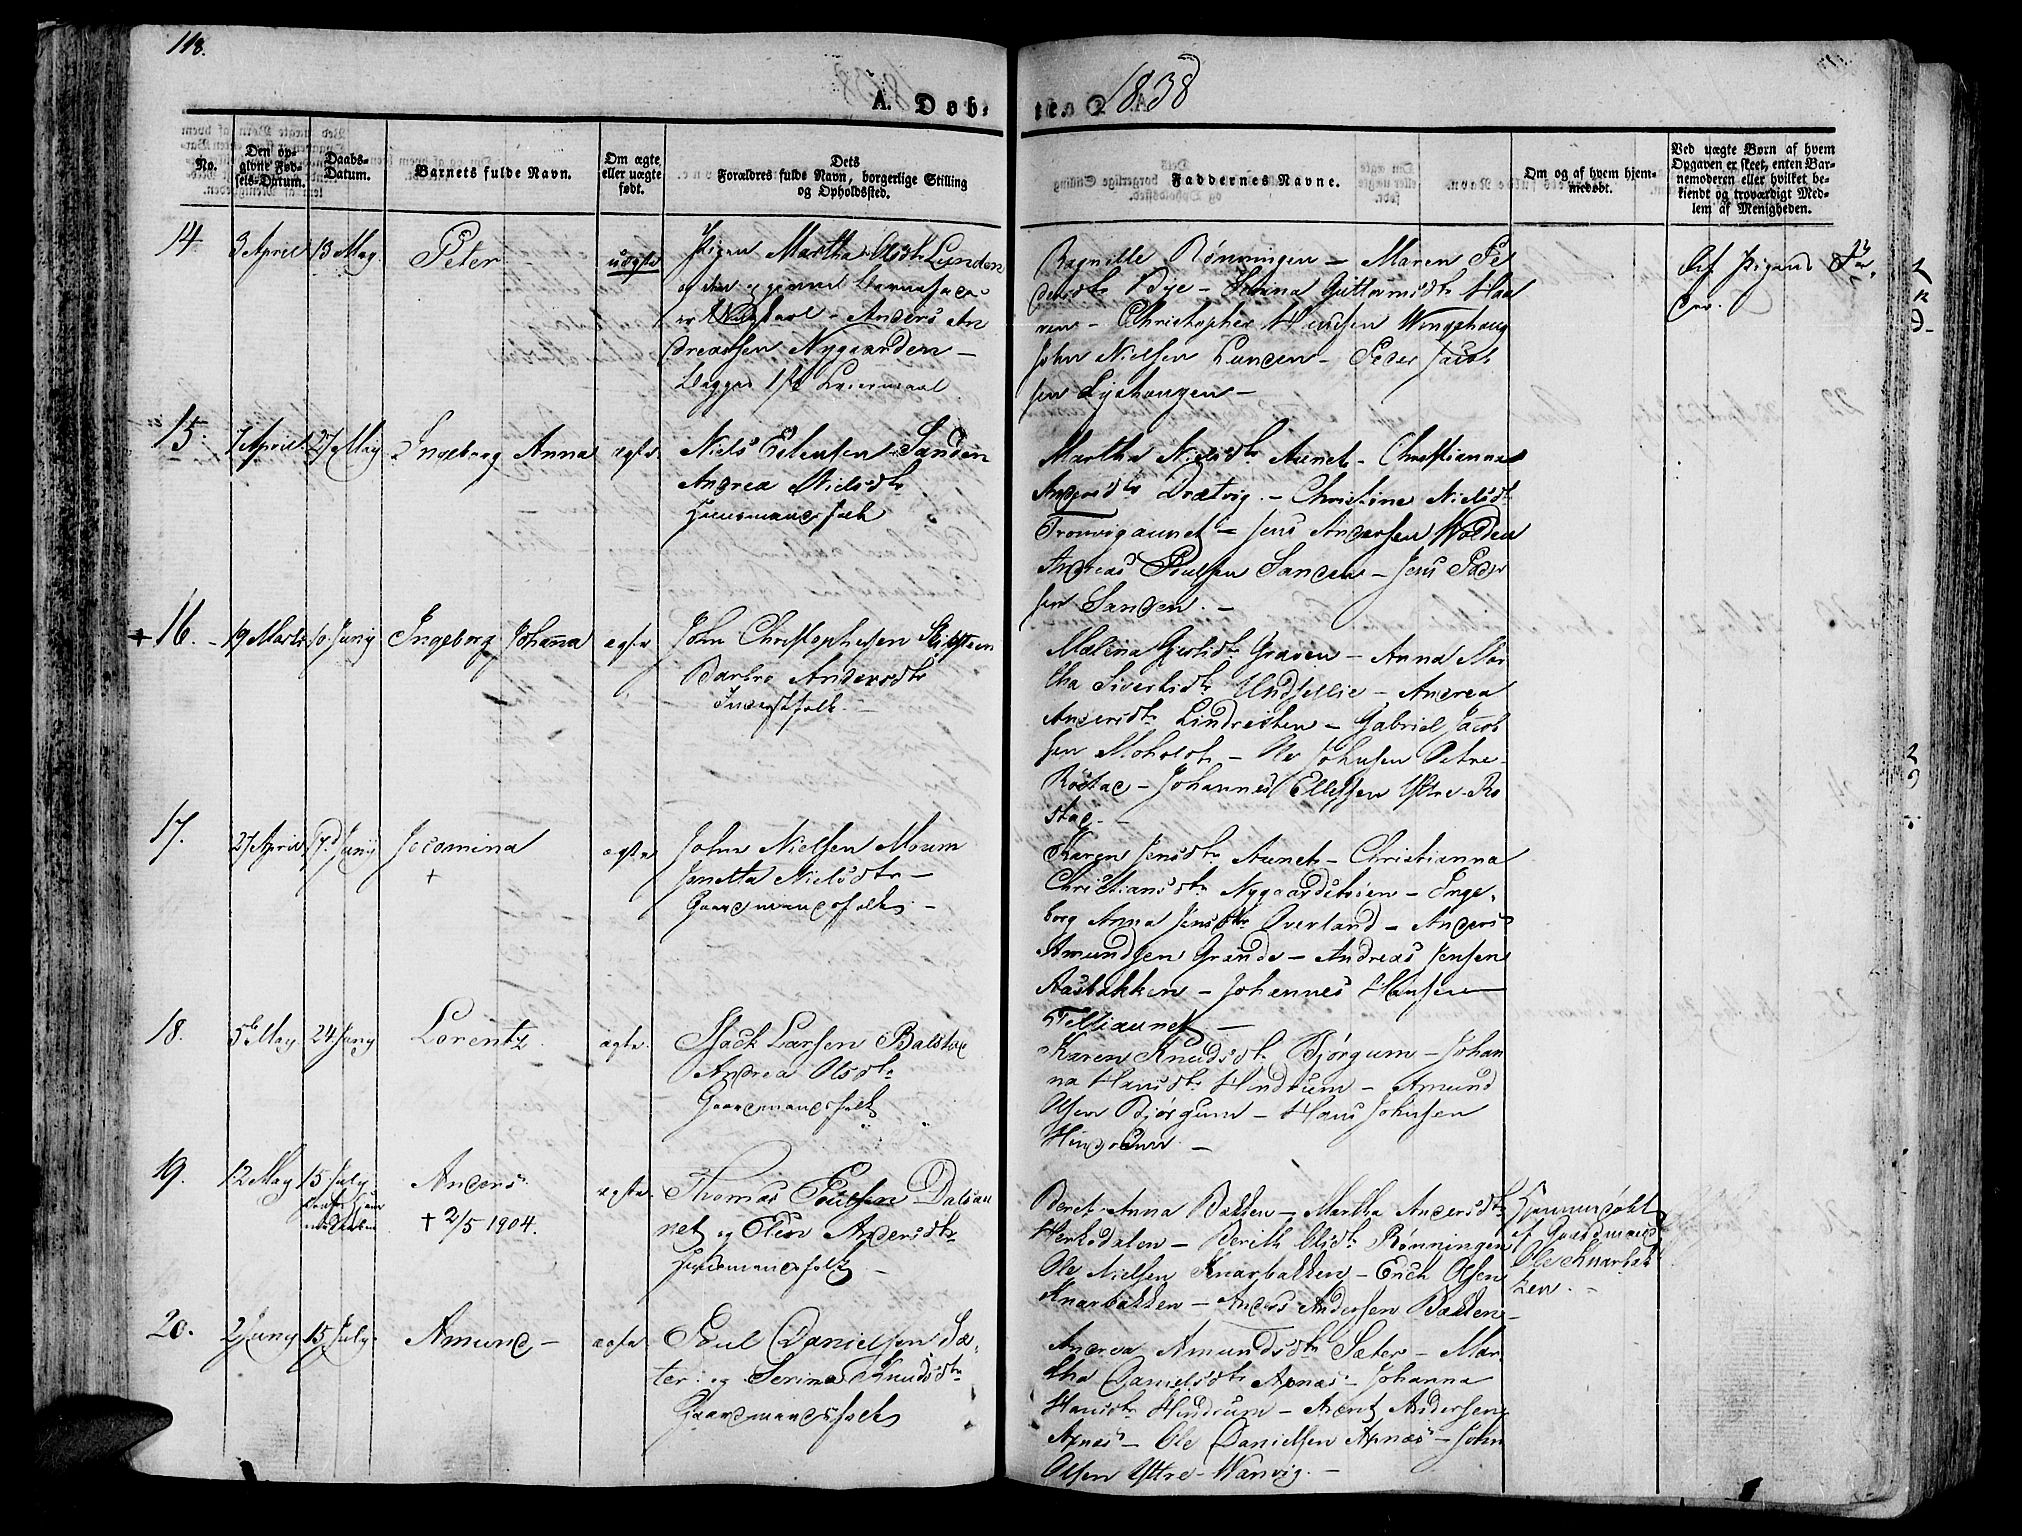 118.
1838
A. Døb-
te. A.
No.
Den op-
givne Fød-
sels-Datum.
Daabs-
Datum.
Barnets fulde Navn.
Om ægte
eller uægte
født.
Dets
Forældres fulde Navn, borgerlige Stilling
og Opholdssted.
Faddernes Navne.
Om og af hvem hjem-
medøbt.
Ved uægte Børn af hvem
Opgaven er skeet, enten Bar-
nemoderen eller hvilket be-
kiendt og troværdigt Med-
lem af Menigheden.
14.
3 April
13 May
Peter
uægte
Pigen Martha Olsdtr Lunden
Anders An
dreassen Nygaarden -
Begges 1ste Leiermaal
Ragnille Rønningen - Maren Pe
dersdtr Bye - Hanna Guttormsdtr Haa
ren - Christopher Hansen Wingshaug
John Nielsen Lunden - Peder Jacob
sen Lyshaugen -
Af Pigens Fa-
der.
15.
7 April
27 May
Ingeborg Anna
ægte
Niels Estensen Sanden
Andrea Nielsdtr
Huusmandsfolk
Martha Nielsdtr Aunet - Christianna
Andersdtr Drætvig. - Christine Nielsdtr
Tronvigaunet - Jens Andersen Wolden
Andreas Poulsen Sanden - Jens Peder
sen Sanden. -
16.
19 Marts
10 Juny
Ingeborg Johanna
ægte
John Christophersen
Barbro Andersdtr
Inderstfolk. -
Malena Graven - Anna Mar
tha Sivertsdtr Undseylie - Andrea
Andersdtr Lindreiten - Gabriel Jacob
sen Moholdt - Ole Johnsen Østre-
Røstad - Johannes Ellefsen Ystre-Rø
stad. -
17.
27 April
17 Juny
Jacomina
+
ægte
John Nielsen Moum
Jonetta Nielsdtr -
Gaardmandsfolk -
Karen Jensdtr Aunet - Christianna
Christiansdtr Nygaardstrøen - Inge-
borg Anna Jensdtr Overland - Anders
Amundsen Grande - Andreas Jensen
Aasbakken - Johannes Hansen
Telliaunet -
18.
5te May
24 Juny
Lorentz.
ægte.
Isack Larsen Balstad
Andrea Olsdtr
Gaardmandsfolk
Karen Knudsdtr Bjørgum - Johan
na Hansdtr Hindrum - Amund
Olsen Bjørgum - Hans Johnsen
Hindrum. -
19.
12 May
15 July
Anders
+ 2/5 1904.
ægte.
Thomas Poulsen Dalsau
net og Elen Andersdtr
Huusmandsfolk -
Beret Anna Bakken - Martha Andersdtr
Herksdalen - Berith Olsdtr Rønningen
Ole Nielsen Knarbakken - Erich Olsen
Knarbakken - Anders Andersen Bakken -
Hjemmedøbt
af Gaardmand
Ole Knarbak
ken. -
20.
2 Juny
15 July
Amund -
ægte
Poul Danielsen Sæ-
ter og Serina Knudsdtr
Gaardmandsfolk
Andrea Amundsdtr Sæter - Mar-
tha Danielsdtr Apnæs - Johanna
Hansdtr Hindrum - Arent Andersen
Apnæs - Ole Danielsen Apnæs - John
Olsen Ystre-Wanvig. -